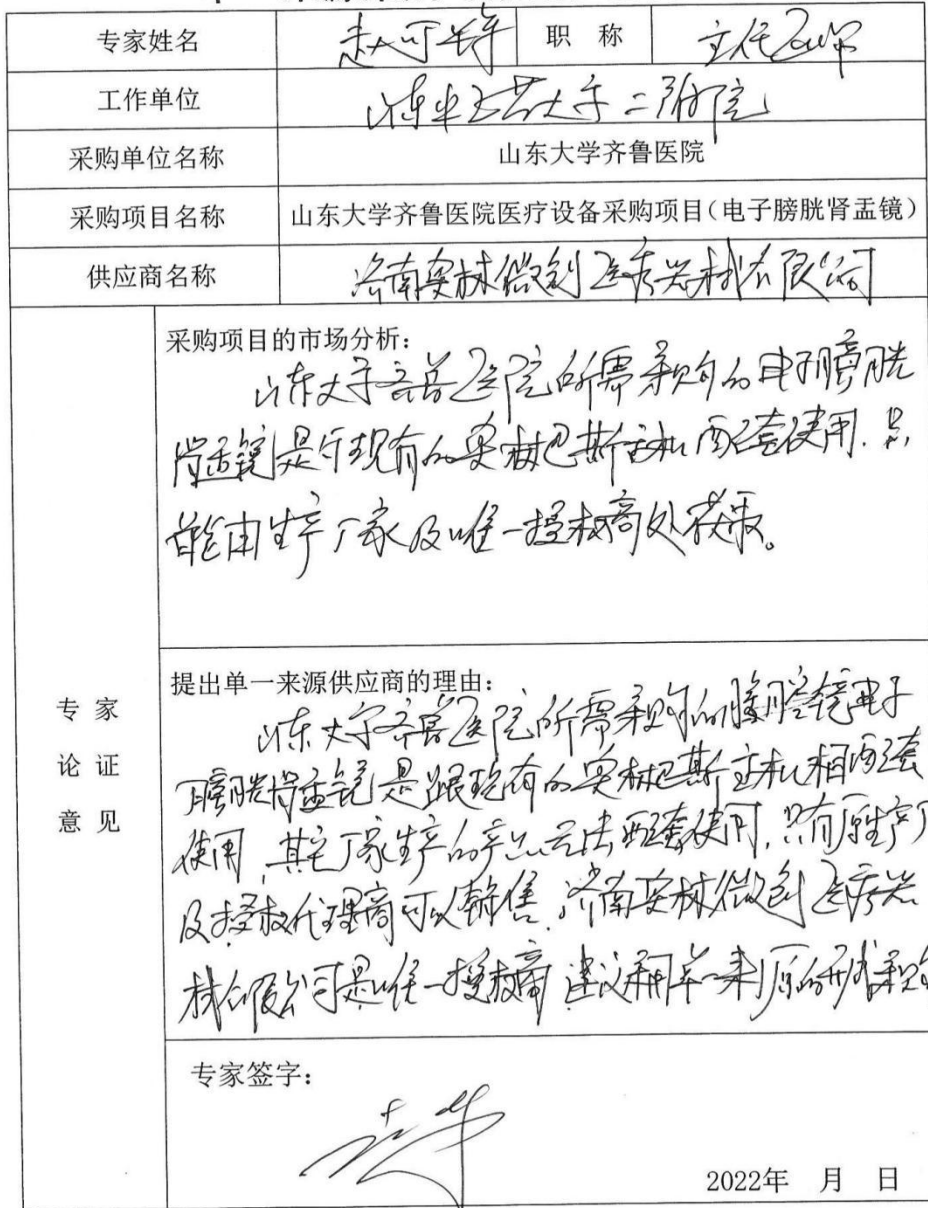 专家姓名 赵 职 称 主任医师
工作单位 山东中医药大学二附院
采购单位名称 山东大学齐鲁医院
采购项目名称 山东大学齐鲁医院医疗设备采购项目(电子膀胱肾盂镜)
供应商名称 济南奥林微创医疗器材有限公司
专家
论证
意见
采购项目的市场分析:
山东大学齐鲁医院所需采购的电子膀胱
肾盂镜是于现有的奥林巴斯主机配套使用,只
能由生产厂家及唯一授权商处获取。
提出单一来源供应商的理由:
山东大学齐鲁医院所需采购的腹腔镜电子
膀胱肾盂镜是跟现有的奥林巴斯主机相配套
使用,其它厂家生产的产品无法配套使用,只有原生产厂
及授权代理商可以销售,济南奥林微创医疗器
材有限公司是唯一授权商,建议采用单一来源的形式采购
专家签字:
2022年 月 日